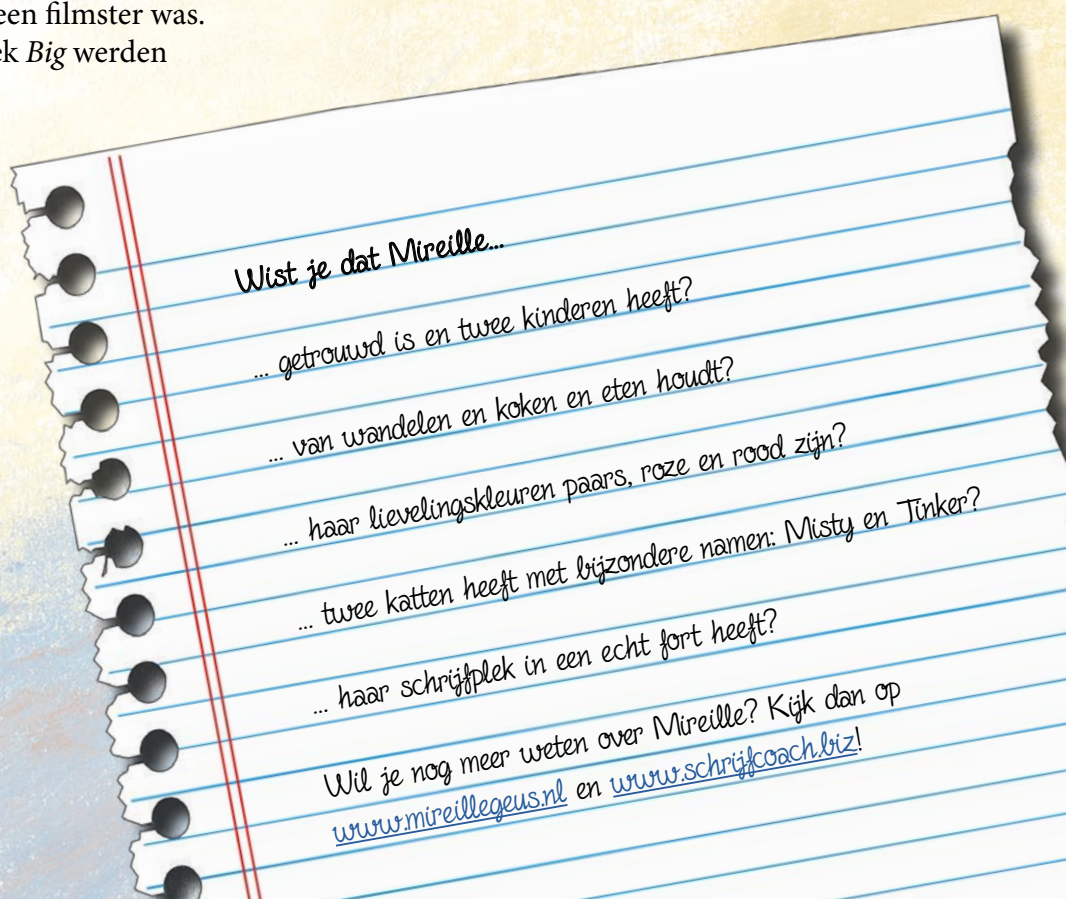 een filmster was.
ek Big werden
Wist je dat Mireille...
... getrouwd is en twee kinderen heeft?
... van wandelen en koken en eten houdt?
... haar lievelingskleuren paars, roze en rood zijn?
... twee katten heeft met bijzondere namen: Misty en Tinker?
... haar schrijfplek in een echt fort heeft?
Wil je nog meer weten over Mireille? Kijk dan op
www.mireillegeus.nl en www.schrijfcoach.biz!